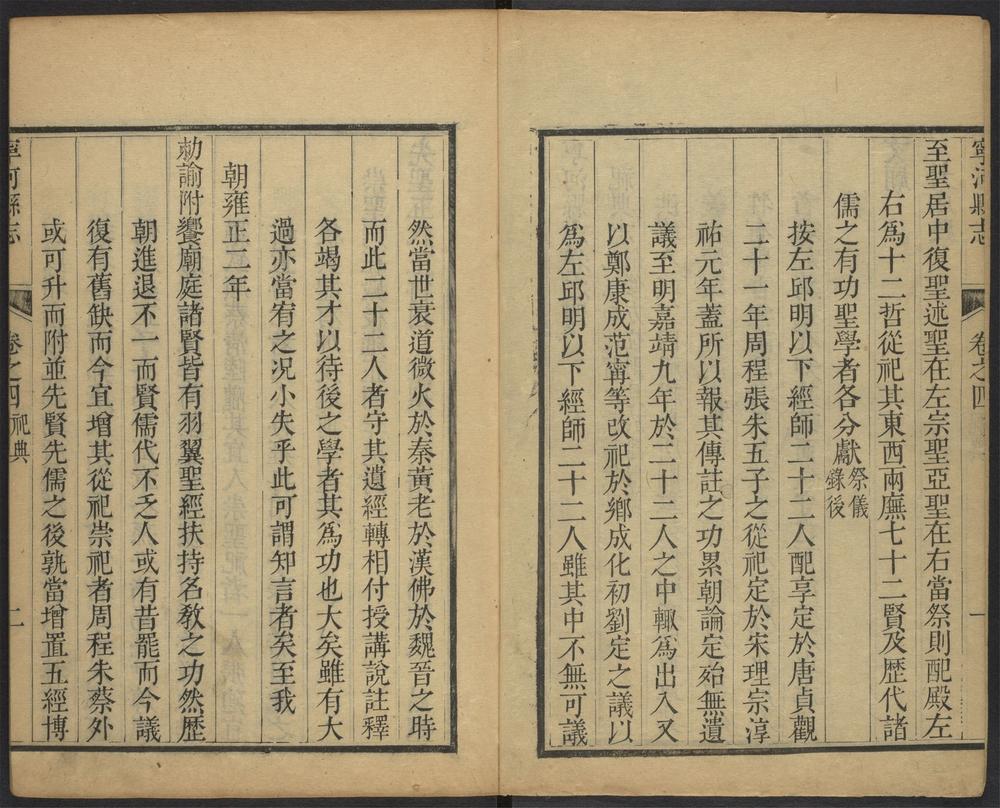 寧河縣志
卷之四
一
至聖居中復聖述聖在左宗聖亞聖在右當祭則配殿左
右爲十二哲從祀其東西兩廡七十二賢及歷代諸
儒之有功聖學者各分獻祭儀
錄後
按左邱明以下經師二十二人配享定於唐貞觀
二十一年周程張朱五子之從祀定於宋理宗淳
祐元年蓋所以報其傳註之功累朝論定殆無遺
議至明嘉靖九年於二十二人之中輙爲出入又
以鄭康成范甯等改祀於鄉成化初劉定之議以
爲左邱明以下經師二十二人雖其中不無可議
然當世衰道微火於秦黃老於漢佛於魏晉之時
而此二十二人者守其遺經轉相付授講說註釋
各竭其才以待後之學者其爲功也大矣雖有大
過亦當宥之况小失乎此可謂知言者矣至我
朝雍正二年
勅諭附饗廟庭諸賢皆有羽翼聖經扶持名敎之功然歷
朝進退不一而賢儒代不乏人或有昔罷而今議
復有舊缺而今宜增其從祀崇祀者周程朱蔡外
或可升而附並先賢先儒之後孰當增置五經博
寧河縣志
卷之四
祀典
二